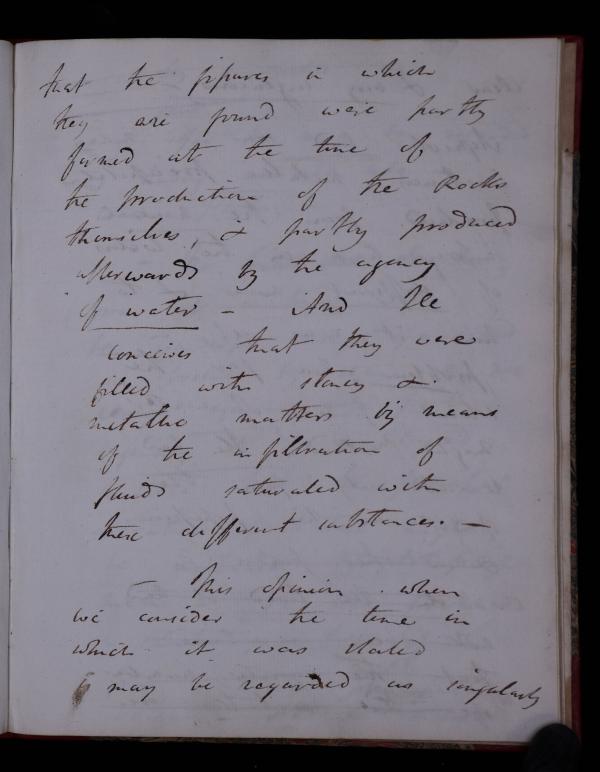 that the fissures in which
they are found were partly
formed at the time of
the production of the Rocks
themselves, & partly produced
afterwards by the agency
of water – And He
conceives that they were
filled with stoney &
metallic matters by means
of the infiltration of
fluids saturated with
these different substances. –
– This opinion when
we consider the time in
which it was stated
may be regarded as singularly